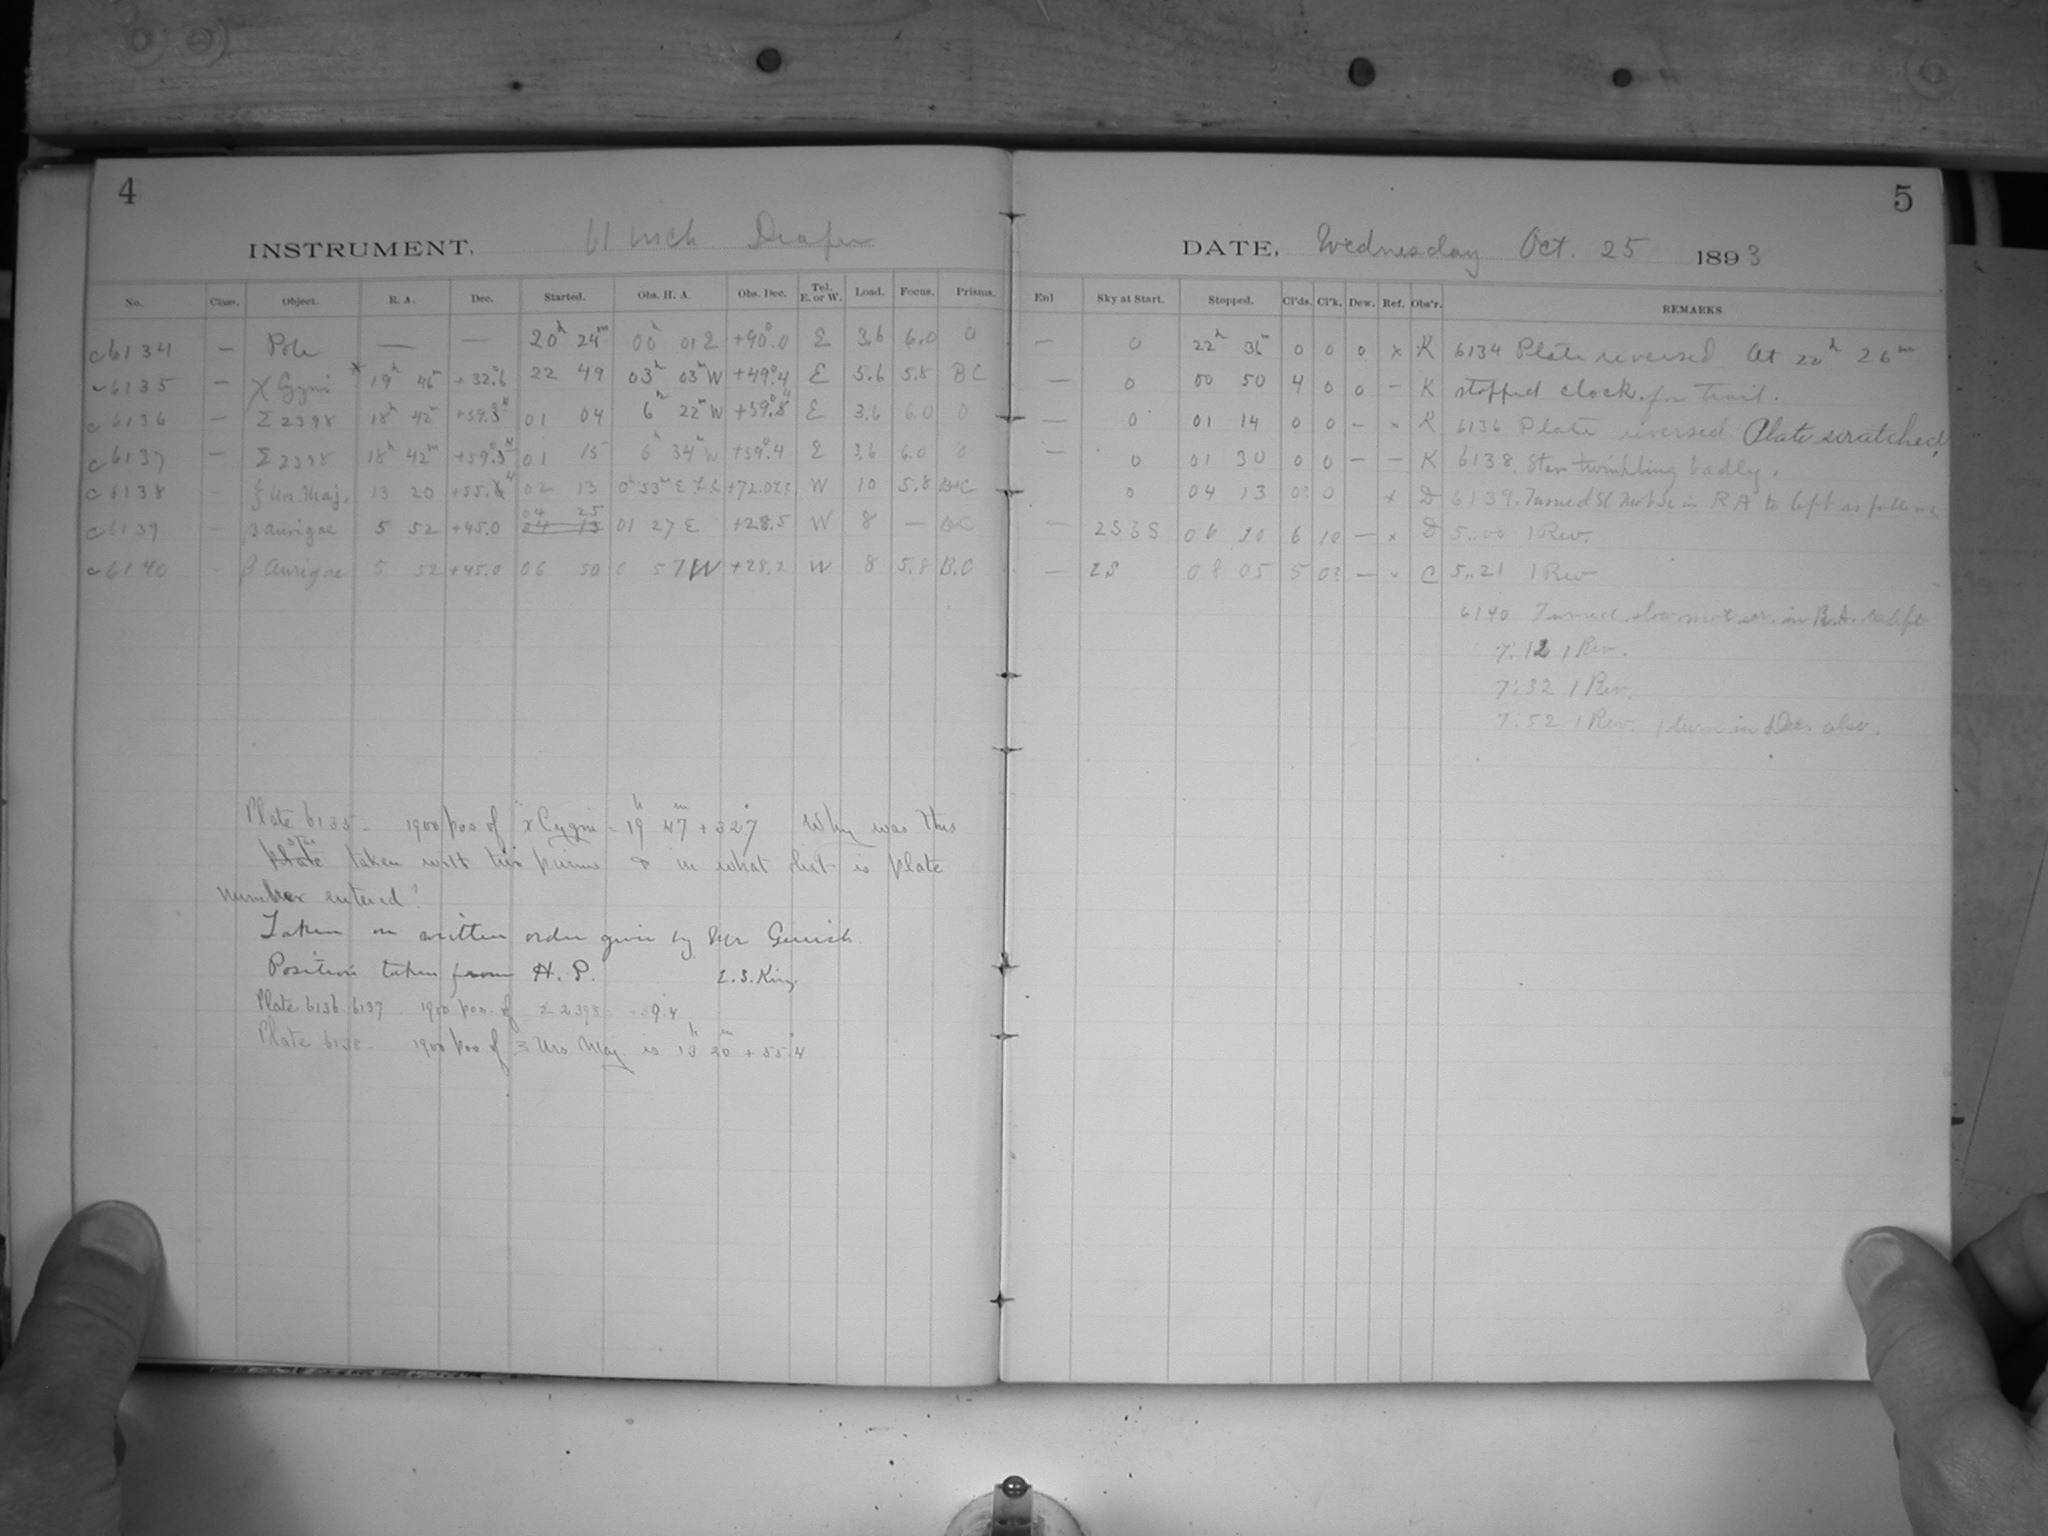 4
INSTRUMENT, 11 inch Draper
No. Class. Object. R. A. Dec. Started. Obs. H. A. Obs. Dec. Tel. E. or W. Load. Focus. Prisms.
c6134 — Pole — — 20h 24m 00h 01 E +90°.0 E 3.6 6.0 0
c6135 — χ Cygni 19h 46m +32°.6 22 49 03h 03m W +49°.4 E 5.6 5.8 BC
c6136 — Σ 2398 18h 42m 01 04 6h 22m W E 3.6 6.0 0
c6137 — Σ 2398 18h 42m 01 15 6h 34m W +59°.4 E 3.6 6.0 0
c6138 — ξ Urs. Maj. 13 20 02 13 W 10 5.8 B+C
c6139 — β Aurigae 5 52 +45.0 04 25 01 27 E +28.5 W 8 — BC
c6140 — β Aurigae 5 52 +45.0 06 50 0 57 W +28.2 W 8 5.8 B.C
Plate 6135 - 1900 pos of χ Cygni = 19h 47m + 32°.7 Why was this
taken with two prisms & in what list is plate
number entered?
Taken on written order given by Mr Gerrish.
Position taken from H. P. E. S. King
Plate 6136. 6137. 1900 pos. of Σ 2398
Plate 6138 - 1900 pos of Urs. Maj. is 13h 20m + 55°.4
5
DATE, Wednesday Oct. 25 1893
Enl Sky at Start. Stopped. Cl'ds. Cl'k. Dew. Ref. Obs'r. REMARKS
— 0 22h 36m 0 0 0 x K 6134 Plate reversed At 22h 26m
— 0 00 50 4 0 0 — K stopped clock for trail.
— 0 01 14 0 0 — x K 6136 Plate reversed Plate scratched
— 0 01 30 0 0 — — K 6138. Star twinkling badly.
0 04 13 0? 0 x D 6139. Turned Sl Mot Sc in R A to left as follows
— 06 30 6 10 — x D 5..00 1 Rev.
— 2S 08 05 5 0? — x C 5..21 1 Rev
6140 Turned slow mot scr. in R.A. to left
7:12 1 Rev.
7:32 1 Rev.
7:52 1 Rev. 1 turn in Dec. also.